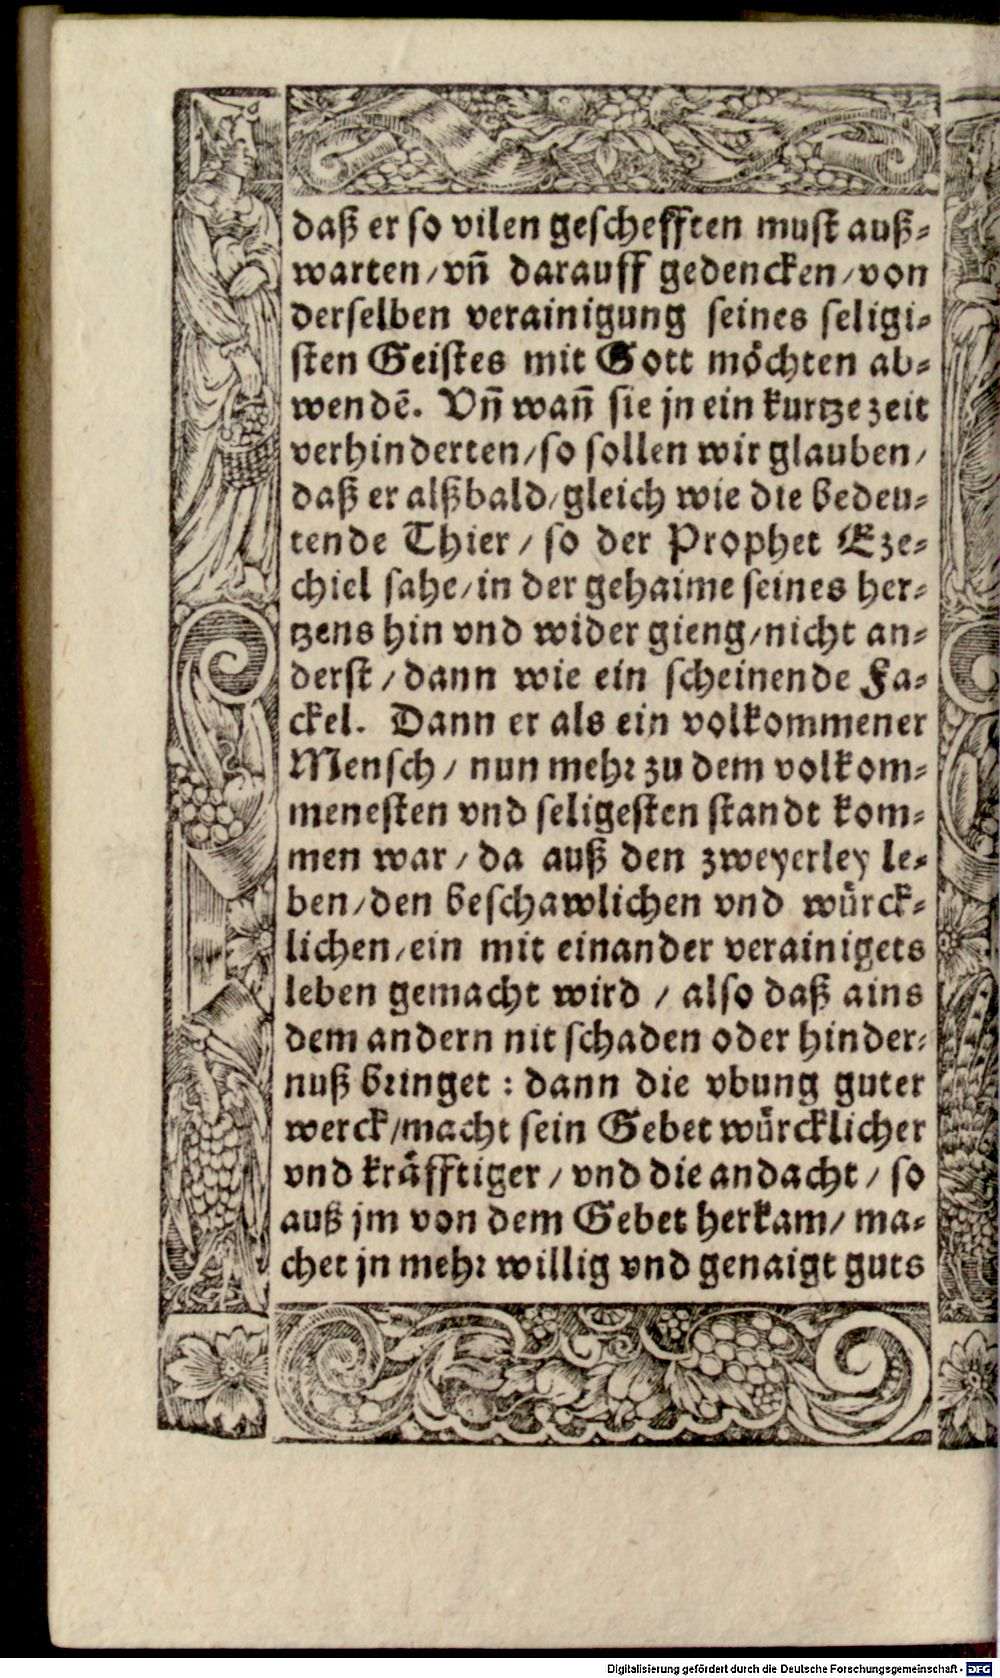 daß er so vilen geschefften must auß-
warten/vñ darauff gedencken/von
derselben verainigung seines seligi-
sten Geistes mit Gott möchten ab-
wendē. Vñ wañ sie jn ein kurtze zeit
verhinderten/so sollen wir glauben/
daß er alßbald/gleich wie die bedeu-
tende Thier/so der Prophet Eze-
chiel sahe/in der gehaime seines her-
tzens hin vnd wider gieng/nicht an-
derst/dann wie ein scheinende Fa-
ckel. Dann er als ein volkommener
Mensch/nun mehr zu dem volkom-
menesten vnd seligesten standt kom-
men war/da auß den zweyerley le-
ben/den beschawlichen vnd würck-
lichen/ein mit einander verainigets
leben gemacht wird/also daß ains
dem andern nit schaden oder hinder-
nuß bringet: dann die vbung guter
werck/macht sein Gebet würcklicher
vnd kräfftiger/vnd die andacht/so
auß jm von dem Gebet herkam/ma-
chet jn mehr willig vnd genaigt guts
Digitalisierung gefördert durch die Deutsche Forschungsgemeinschaft - DFG